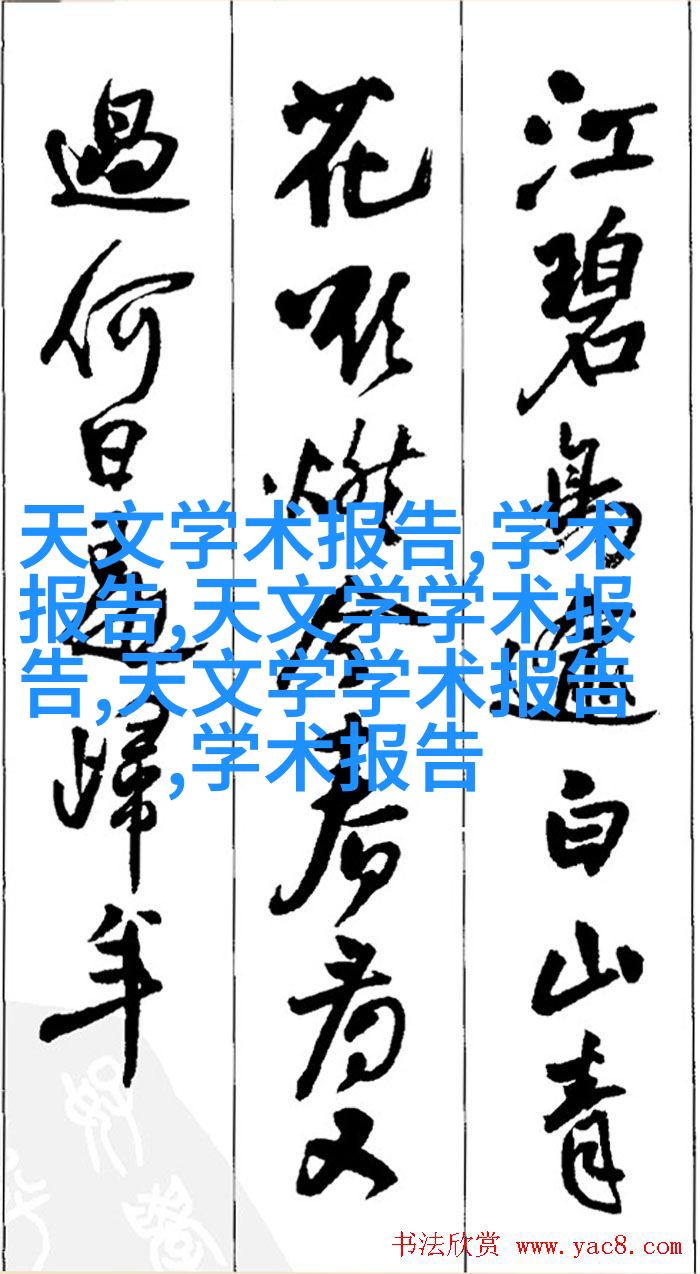 江碧鳥逾白山青
花欲燃今春看又
過何日是歸年
天文学术报告,学术
报告,天文学学术报
告,天文学学术报告
,学术报告
书法欣赏 www.yac8.com